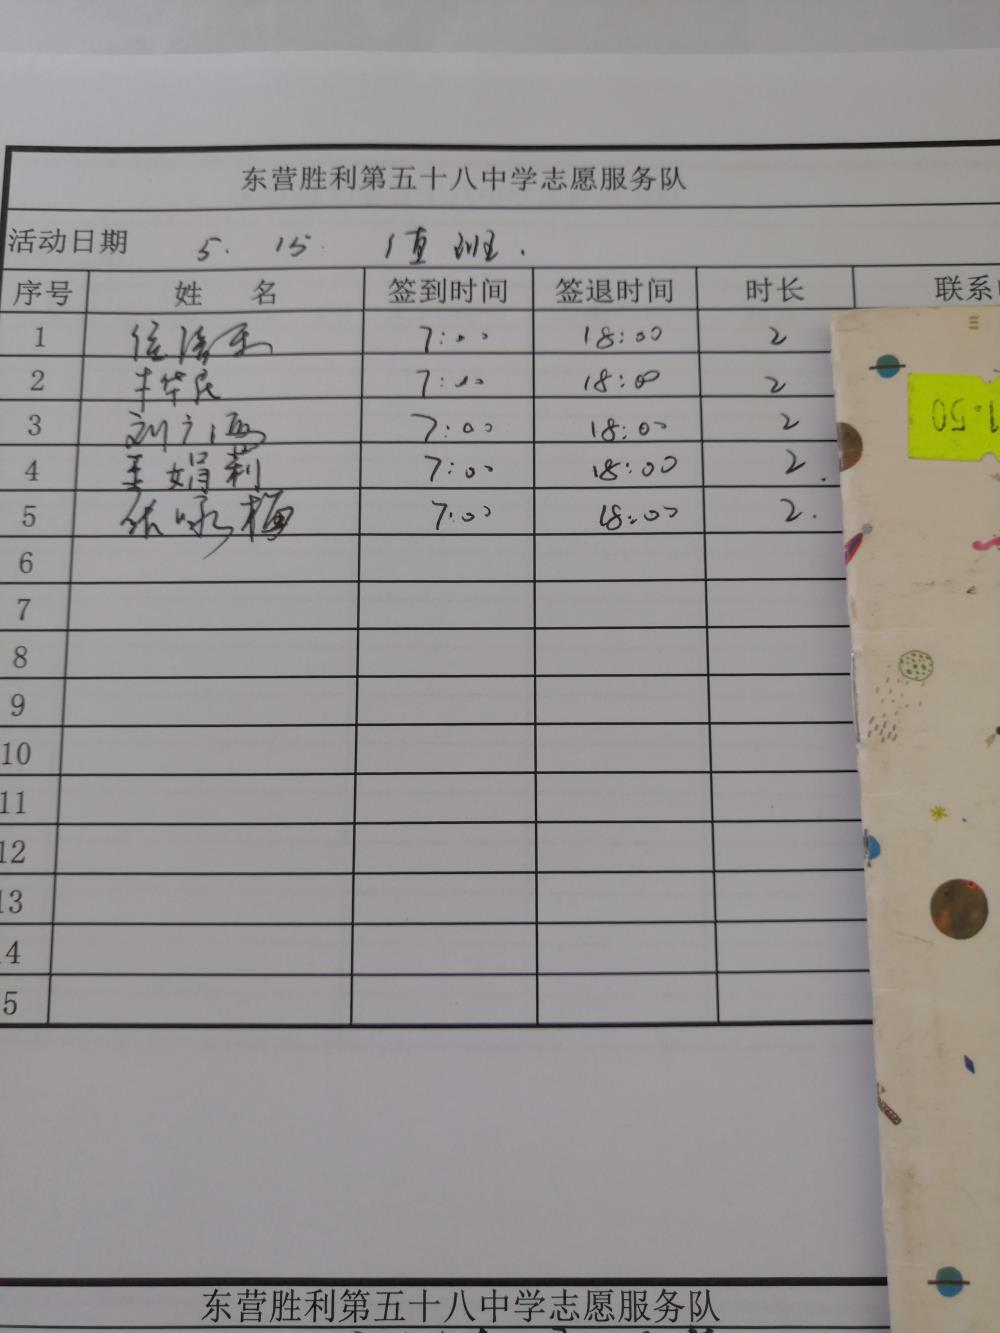 东营胜利第五十八中学志愿服务队
活动日期 5. 15. 值班.
序号 姓 名 签到时间 签退时间 时长 联系
1 7:00 18:00 2
2 丰华民 7:00 18:00 2
3 刘广 7:00 18:00 2
4 王娟莉 7:00 18:00 2.
5 张咏梅 7:00 18:00 2.
6
7
8
9
10
11
12
13
4
5
1.50
东营胜利第五十八中学志愿服务队